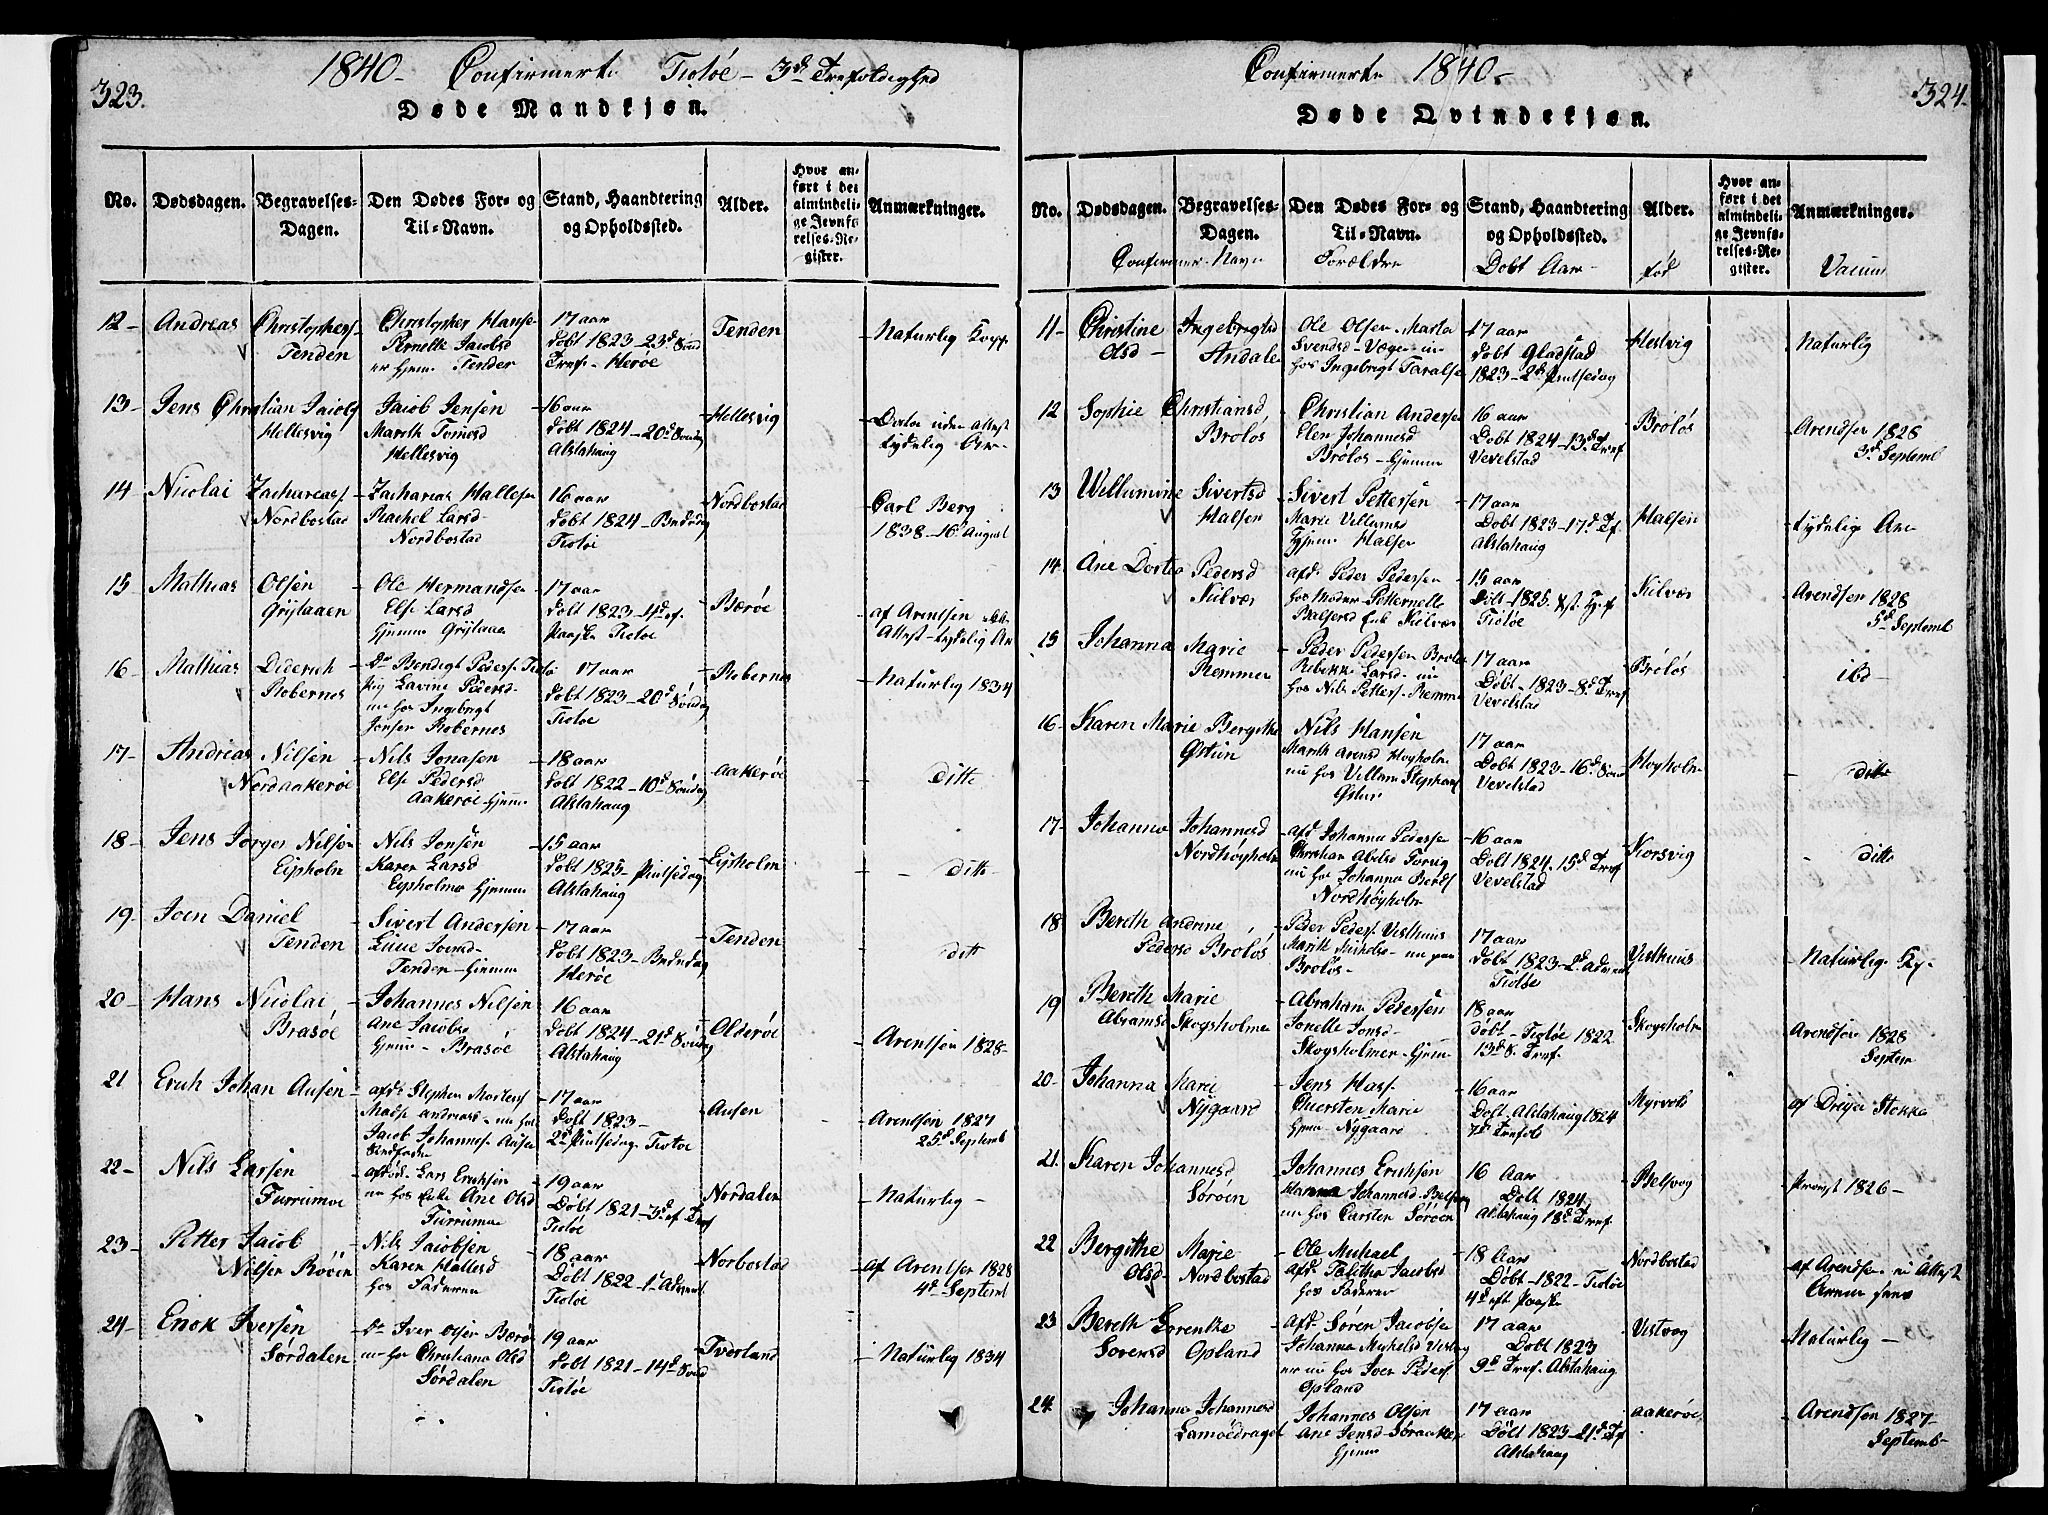 323.
1840 - Confirmerte Tiotøe - 3d Trefoldighed
Døde Mandkjøn.
No.
Dødsdagen.
Begravelses-Dagen.
Den Dødes For- og Til-Navn.
Stand, Haandtering og Opholdssted.
Alder.
Hvor anført i det almindelige Jevnførelses-Register.
Anmærkninger.
12 - Andreas Christophers
Tenden
Christopher Hanse
Pernelle Jacobsd
er hjem Tenden
17 aar
døbt 1823 - 23d Sønd
Tref - Herøe
Tenden
Naturlig Kopp
13 - Jens Christian Jacobs
Hellesvig
Jacob Jensen
Mareth
Hellesvig
16 aar
Døbt 1824 - 20d Søndag
Alstahaug
Hellesvig
tydelig Ar -
14 Nicolai Zachariass
Nordbostad
Zacharias Hallesen
Rachel Larsd -
Nordbostad
16 aar
døbt 1824 - Bededag
Tiotøe
Nordbostad
Carl Berg
1838 - 16 August
15 Mathias Olsen
Ole Hermandsen
Else Larsd
17 aar
Døbt 1823 - 4d ef.
Paaske Tiotøe
Bærøe
af Arentsen
Attest - tydelig Ar
16 Mathias Diderich
Robernes
Bendigt Peders
Pig Lavine Pedersd -
nu hos Ingebrigt
Jensen Robernes
17 aar
Døbt 1823 - 20d Søndag
Tiotøe
Robernes
Naturlig 1834
17 - Andreas Nilsen
Nordaakerøe
Nils Jonasen
Else Pedersd
Aakerøe - hjem
18 aar
Døbt 1822 - 10d Søndag
Alstahaug
Aakerøe
ditto
18 - Jens Jørgen Nilsen
Eipholm
Nils Jonsen
Karen Larsd
Eipholm hjem
15 aar
Døbt 1825 - Pintsedag
Alstahaug
Eipholm
ditto
19 - Joen Daniel
Tenden
Sivert Andersen
Line Iversd -
Tenden - hjem
17 aar
Døbt 1823 - Bededag
Herøe
Tenden
ditt
20 - Hans Nicolai
Brasøe
Johannes Nilsen
Ane Jacobs
hjem - Brasøe
16 aar
Døbt 1824 - 21d Søndag
Alstahaug
Olderøe
Arentsen 1828 -
21 Erich Johan Ausen
afd. Stephen Mortens
nu hos
Jacob Johannes Ausen
17 aar
Døbt 1823 -
2d Pintsedag Tiotøe
Ausen
Arentsen 1827
25d Septemb
22 - Nils Larsen
Lars Erichsen
nu hos Enke Ane Olsd
19 aar
Døbt 1821 - 3d ef Tref
Tiotøe
Nordalen
Naturlig -
23 - Petter Jacob
Nilsen Røvir
Nils Jacobsen
Karen Hallesd
hos Faderen
18 aar
Døbt 1822 - 1d Advent
Tiotøe
Norbostad
af Arentsen 1828
4d Septemb
24 - Enok Iversen
Sørdalen
Iver Olsen Bærø
nu hos Christiana Olsd
Sørdalen
19 aar
Døbt 1821 - 14d Sønd
Tiotøe
Tverland
Naturlig 1834
324.
Confirmerte 1840 -
Døde Qvindekjøn.
No.
Dødsdagen.
Begravelses-Dagen.
Den Dødes For- og Til-Navn.
Stand, Haandtering og Opholdssted.
Alder.
Hvor anført i det almindelige Jevnførelses-Register.
Anmærkninger.
Confirmer. Navn
Forældre
Døbt Aar -
fød
Vaccin
11 - Christine Ingebrigtsd
Olsd - Andalen
Ole Olsen - Marta
Svendsd - Vægen nu
hos Ingebrigt Taralse
17 aar
døbt Gladstad
1823 - 2d Pintsedag
Hestvig
Naturlig
12 Sophie Christiansd,
Brøløs
Christian Andersen
Elen Johannesd
Brøløs - hjemme
16 aar
Døbt 1824 - 13d Tref
Vevelstad
Brøløs
Arendsen 1828
3d Septemb
13 Willumine Sivertsd
Halsen
Sivert Pettersen
Marie Villums
hjem Halsen
17 aar
Døbt 1823 - 17d Tf.
Alstahaug
Halsen
tydelige Ar -
14. Ane Dortea Pedersd
Kilvær
afd. Peder Pedersen
hos Moder Petternelle
15 aar
Døbt - 1825.
Tiotøe
Kilvær
Arendsen 1828
5d Septemb
15 Johanna Marie
Remmen
Peder Pedersen Brøløs
Rebekka Larsd - nu
hos Nils Petters Remme
17 aar
Døbt - 1823 - 8d Tref
Vevelstad
Brøløs
ibd -
16 - Karen Marie Bergithe
Nils Hansen
Mareth Arensd Høyholm
nu hos Villum Stephans
17 aar
Døbt 1823 - 16d Sønd
Vevelstad
Høyholm
ditto
17 - Johanna Johannesd
Nordhøyholm
afd. Johannes Pedersen
nu hos Johannes
Nordhøyholm
16 aar
Døbt 1824. 15d Tref
Vevelstad
Korsvig
ditto
18 Bereth Andrine
Pedersd Brøløs
Peder Peders. Visthuus
nu paa
Brøløs -
17 aar
døbt 1823 - 2d Advent
Tiotøe
Visthuus
Naturlig
19 Bereth Marie
Abramsd Skogsholmen
Abraham Pedersen
Jonelle Jonsd -
Skogsholmen - hjem
18 aar
døbt - Tiotøe 1822
13d S. Tref.
Skogsholm
Arendsen 1828
Septem
20 - Johanna Marie
Nygaard
Jens Hass
Marie
hjem Nygaard
16 aar
Døbt. Alstahaug 1824
7d Trefold
Myrvold
af Dreyer Stokka
21. Karen Johannesd
Sørøen
Johannes Erichsen
Hanna Johannesd -
nu hos Carsten Sørøen
16 Aar
Døbt 1824
Alstahaug 18d Tref.
Belsvog
Provst 1826 -
22 Bergithe Marie
Olsd - Nordbostad
Ole Michael
afd. Talitha Jacobsd
hos Faderen
18 Aar
Døbt - 1822 - Tiotøe
4d eft Paaske
Nordbostad
af Arendsen
23 Bereth Lorentze
Sorensd Opland
afd. Søren Jacobsen
Johanna Michelsd
er nu hos Iver Peders.
Opland
17 aar
Døbt 1823
9d Tref. Alstahaug
Vistvog
Naturlig -
24. Johanna Johannesd
Johannes Olsen
Ane Jensd - Søraaker
hjem
17 aar
Døbt 1823 - 21d Tref
Alstahaug
Aakerøe
Arendsen 1827 -
Septemb -